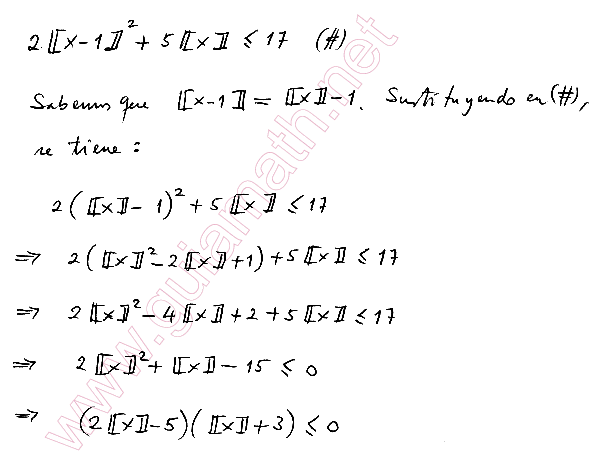 2⟦x-1⟧² + 5⟦x⟧ ≤ 17 (#)
Sabemos que ⟦x-1⟧ = ⟦x⟧-1. Sustituyendo en (#),
se tiene:
2(⟦x⟧- 1)² + 5⟦x⟧ ≤ 17
⇒ 2(⟦x⟧² - 2⟦x⟧+1) + 5⟦x⟧ ≤ 17
⇒ 2⟦x⟧² - 4⟦x⟧ + 2 + 5⟦x⟧ ≤ 17
⇒ 2⟦x⟧² + ⟦x⟧ - 15 ≤ 0
⇒ (2⟦x⟧-5)(⟦x⟧+3) ≤ 0
www.guiamath.net